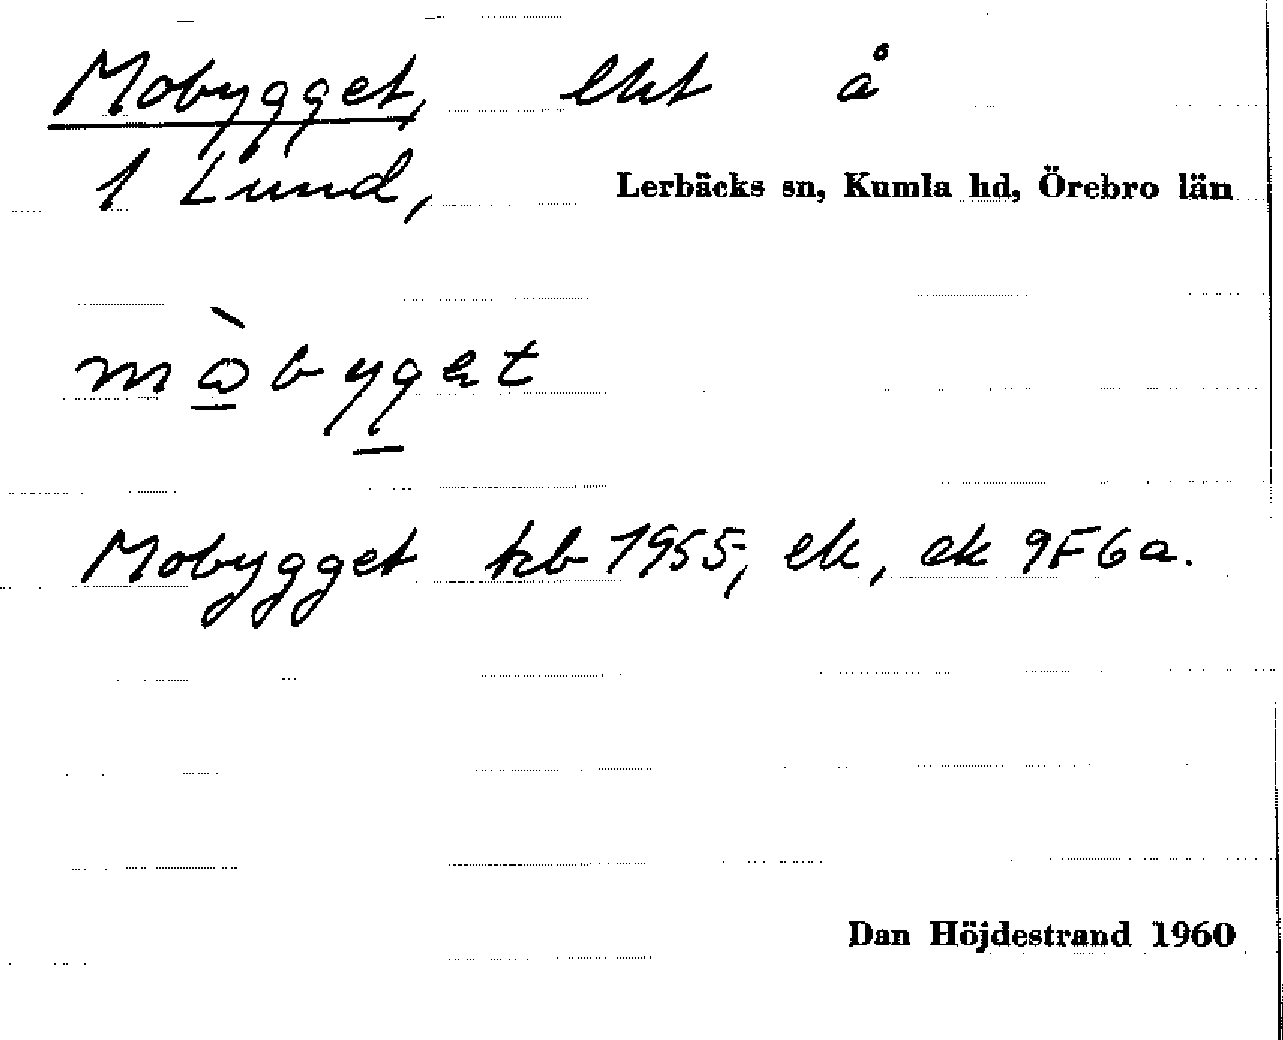 Mobygget, ekt å
1 Lund, Lerbäcks sn, Kumla hd, Örebro län
mòbyget
Mobygget kb 1955, ek, ek 9F6a.
Dan Höjdestrand 1960